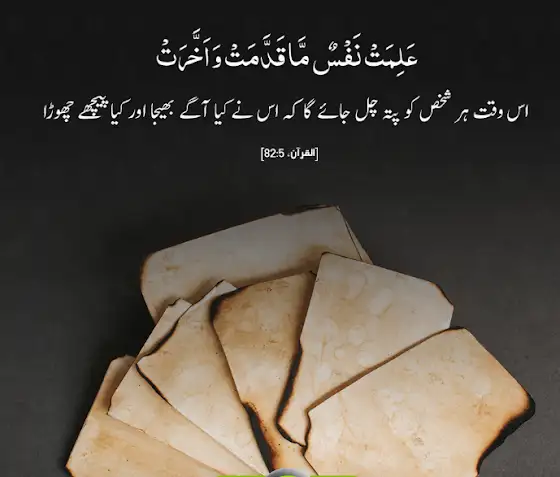 عَلِمَتْ نَفْسٌ مَّا قَدَّمَتْ وَاَخَّرَتْ
اس وقت ہر شخص کو پتہ چل جائے گا کہ اس نے کیا آگے بھیجا اور کیا پیچھے چھوڑا
[القرآن، 82:5]